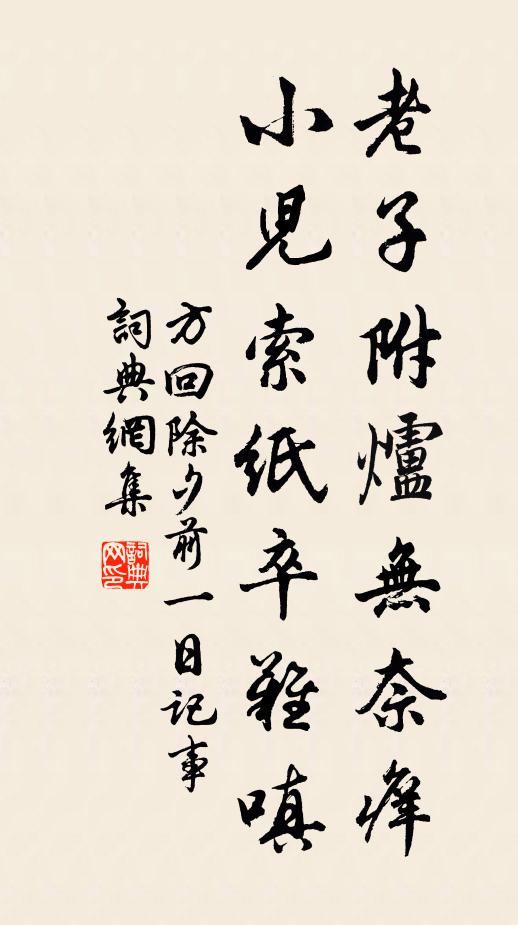 老子附爐無奈癢
小兒索紙卒難嗔
方回除夕前一日記事
詞典網集
詞典網印